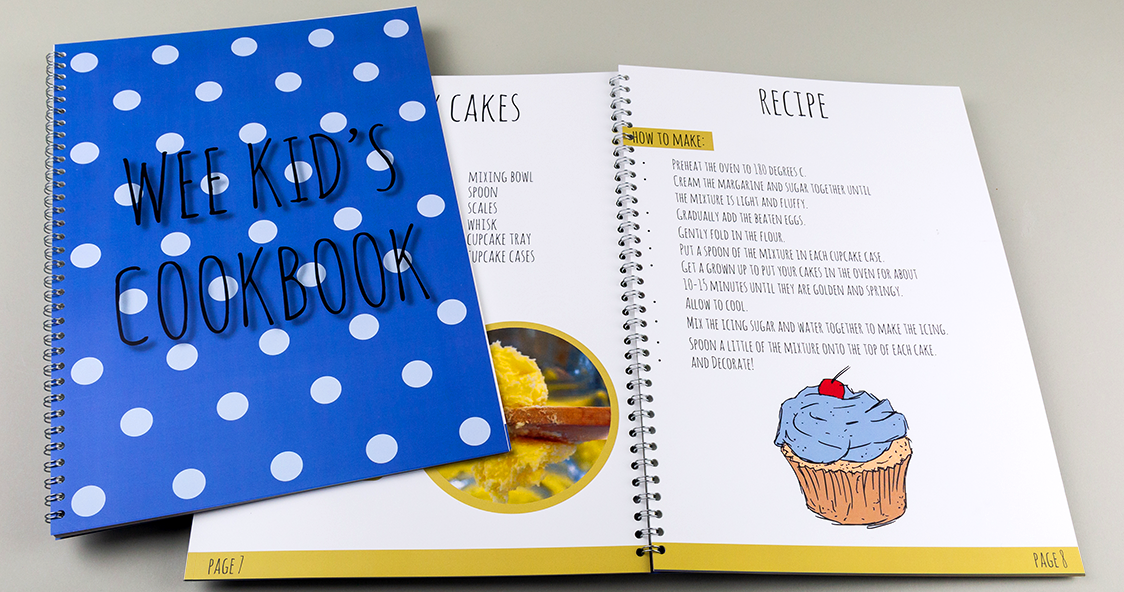 WEE KID'S
COOKBOOK
CAKES
MIXING BOWL
SPOON
SCALES
WHISK
CUPCAKE TRAY
CUPCAKE CASES
PAGE 7
RECIPE
HOW TO MAKE:
PREHEAT THE OVEN TO 180 DEGREES C.
CREAM THE MARGARINE AND SUGAR TOGETHER UNTIL
THE MIXTURE IS LIGHT AND FLUFFY.
GRADUALLY ADD THE BEATEN EGGS.
GENTLY FOLD IN THE FLOUR.
PUT A SPOON OF THE MIXTURE IN EACH CUPCAKE CASE.
GET A GROWN UP TO PUT YOUR CAKES IN THE OVEN FOR ABOUT
10-15 MINUTES UNTIL THEY ARE GOLDEN AND SPRINGY.
ALLOW TO COOL.
MIX THE ICING SUGAR AND WATER TOGETHER TO MAKE THE ICING.
SPOON A LITTLE OF THE MIXTURE ONTO THE TOP OF EACH CAKE.
AND DECORATE!
PAGE 8